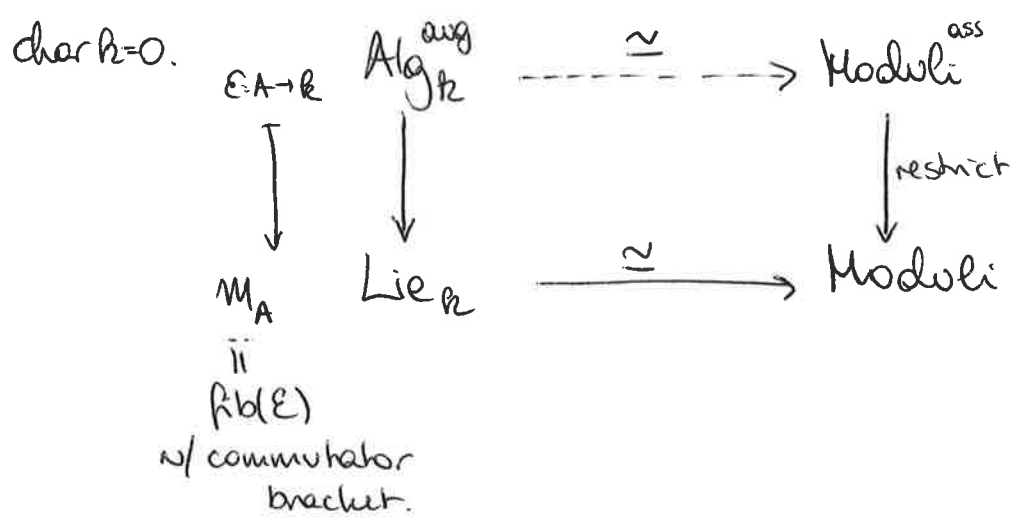 char k=0.
ε: A → k Alg_k^aug ≃ Moduli^ass
restrict
m_A Lie_k ≃ Moduli
fib(ε)
w/ commutator
bracket.